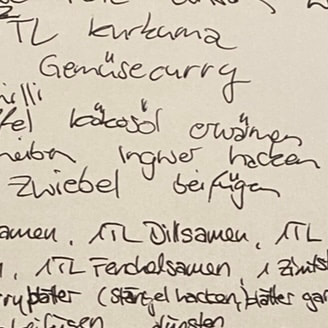 TL Kurkuma
Gemüsecurry
illi
fel kokosöl erwärmen
heiben Ingwer hacken
Zwiebel beifügen
amen, 1TL Dillsamen, 1TL
1TL Fenchelsamen, 1 Zimtst
ryblätter (Stängel hacken, Blätter gan
beifügen dünsten